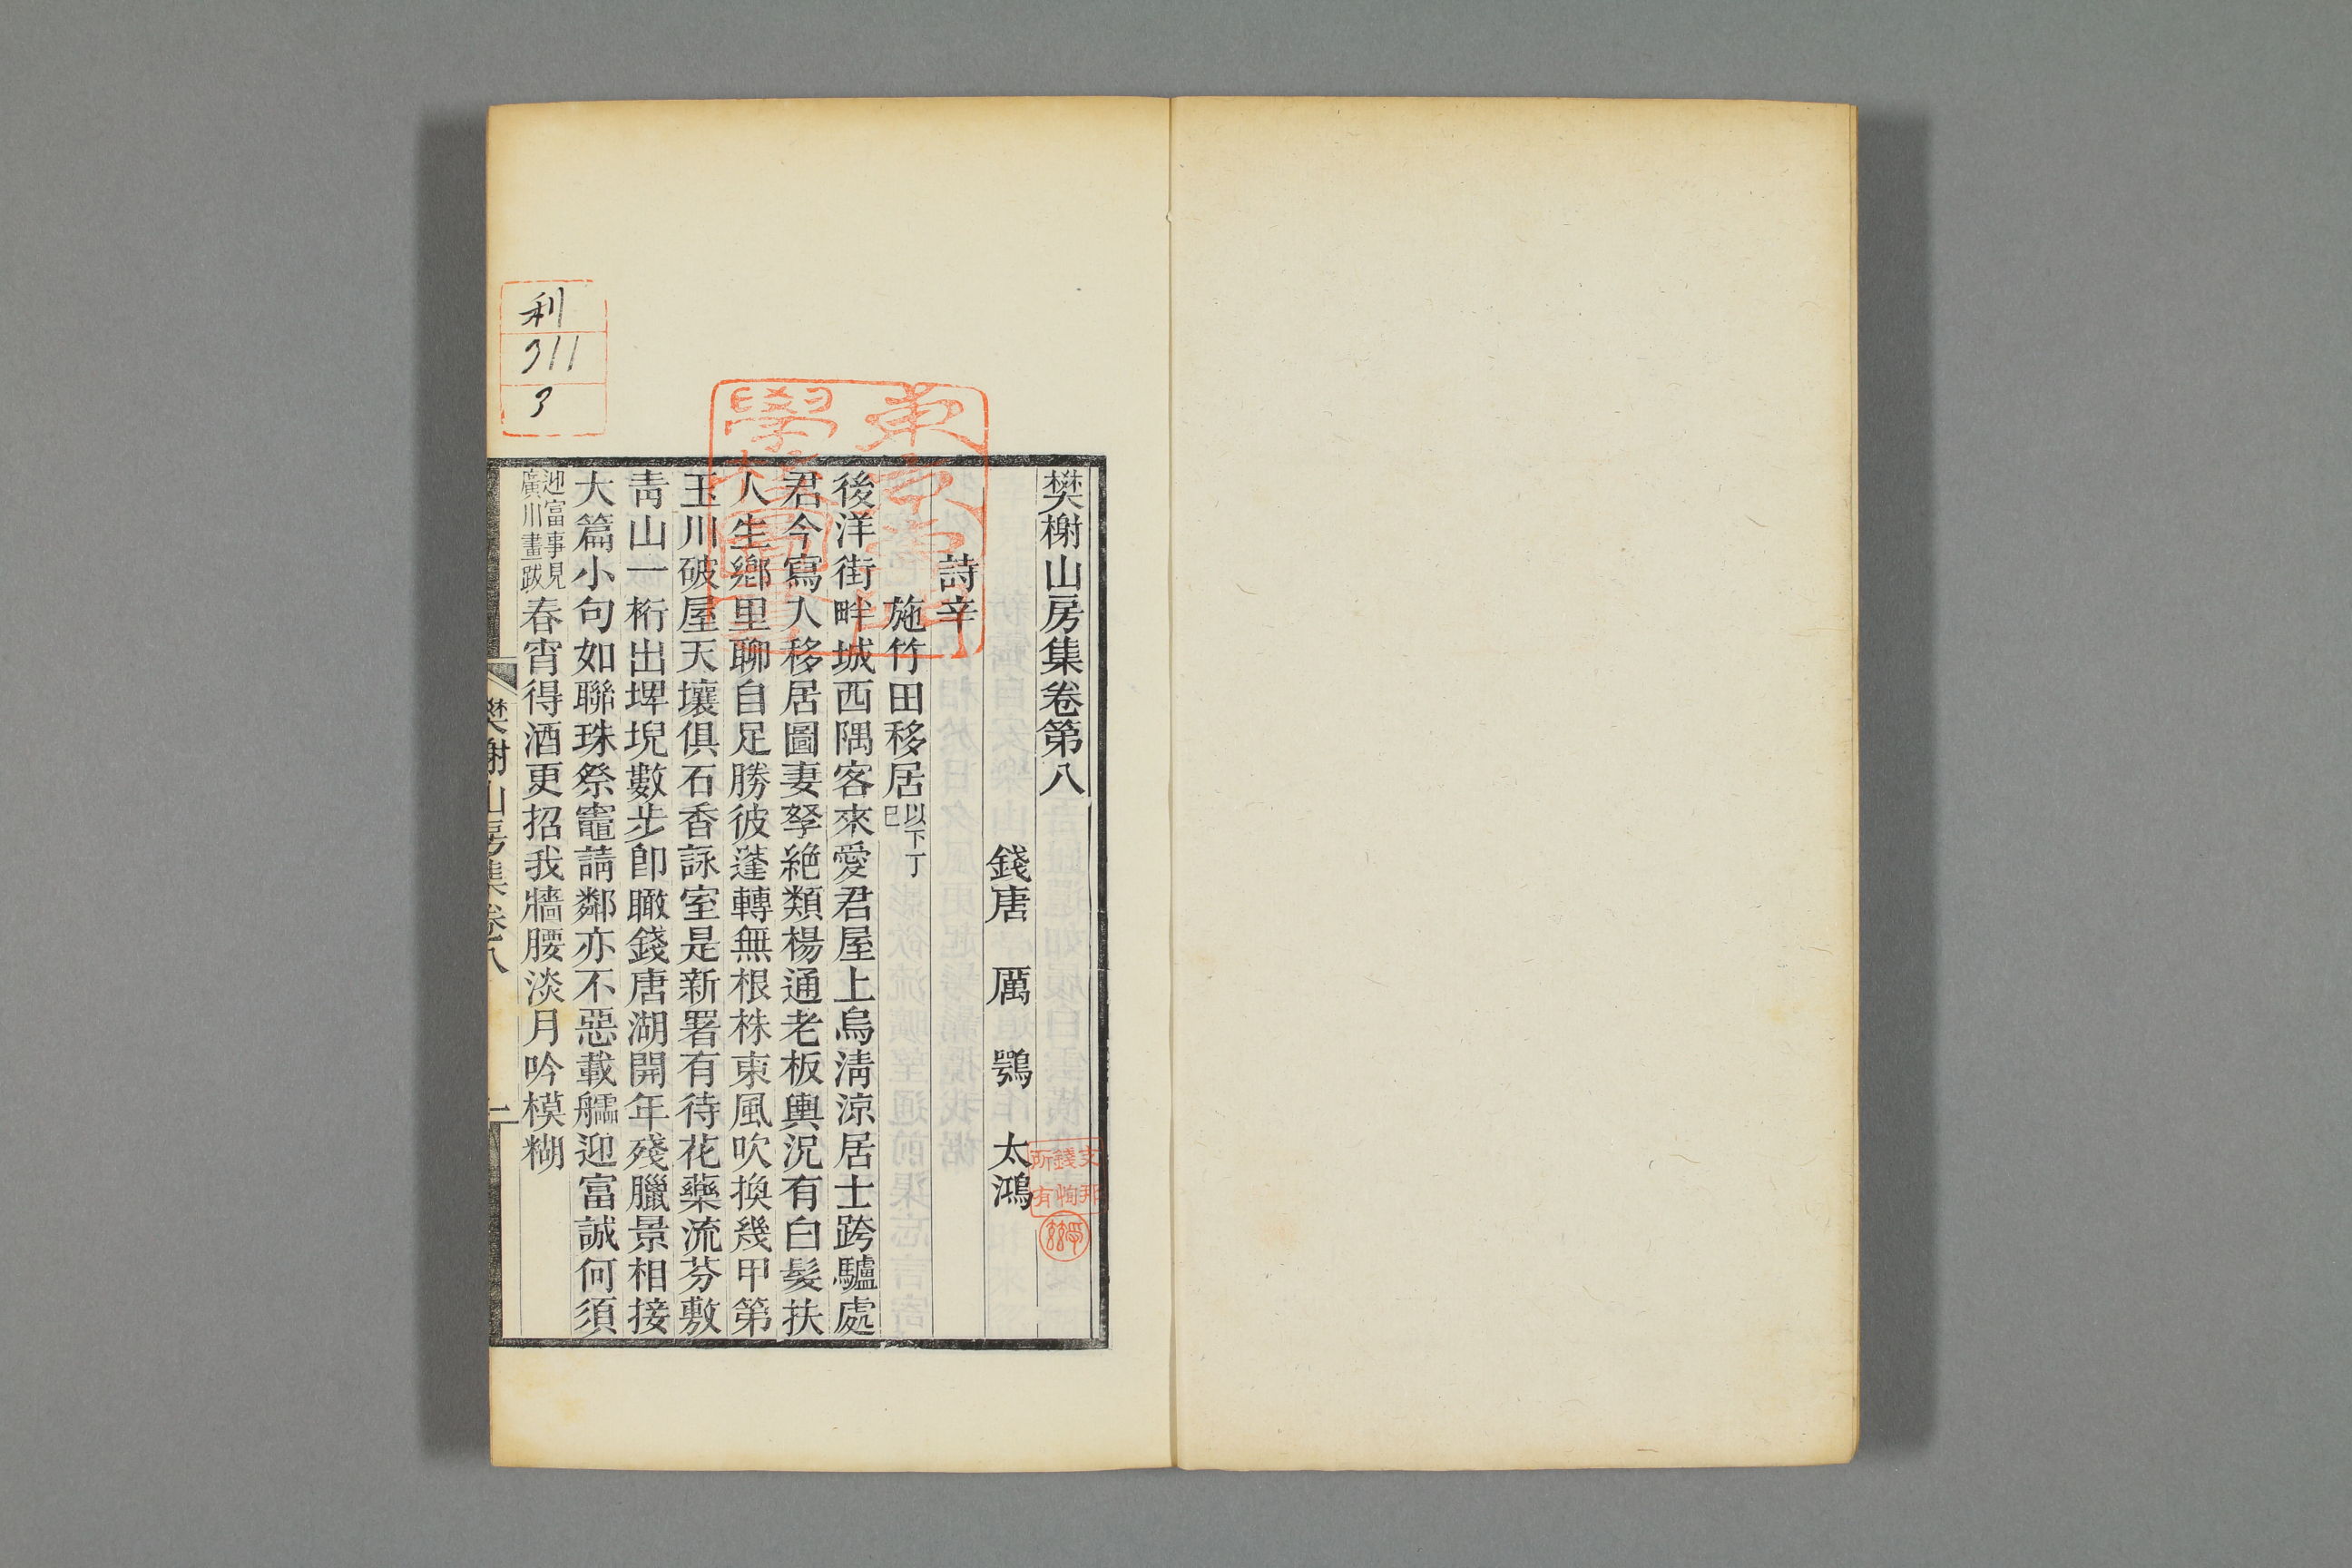 樊榭山房集卷第八
錢唐 厲 鶚 太鴻
詩辛
施竹田移居以下丁巳
後洋街畔城西隅客來愛君屋上烏淸涼居士跨驢處
君今寫入移居圖妻孥絶類楊通老板輿況有白髮扶
人生鄉里聊自足勝彼蓬轉無根株東風吹換幾甲第
玉川破屋天壤俱石香詠室是新署有待花藥流芬敷
靑山一桁出埤堄數步卽瞰錢唐湖開年殘臘景相接
大篇小句如聯珠祭竈請鄰亦不惡載𦪇迎富誠何須
迎富事見廣川畫跋春宵得酒更招我牆腰淡月吟模糊
樊榭山房集卷八
一
利
311
3